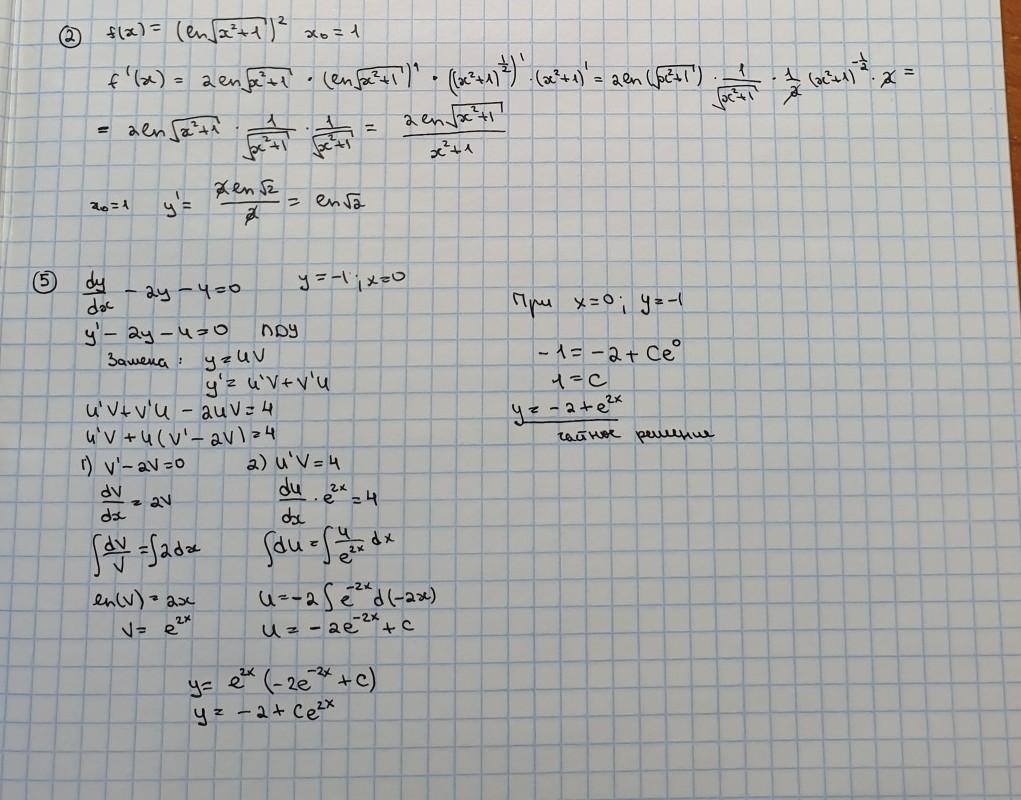 ② f(x) = (ln√(x²+1))² x₀ = 1
f'(x) = 2ln√(x²+1) · (ln√(x²+1))' · ((x²+1)^(1/2))' · (x²+1)' = 2ln(√(x²+1)) · 1/√(x²+1) · 1/2 (x²+1)^(-1/2) · 2 =
= 2ln√(x²+1) · 1/√(x²+1) · 1/√(x²+1) = 2ln√(x²+1)/(x²+1)
x₀=1 y' = 2ln√2/2 = ln√2
⑤ dy/dx - 2y - 4 = 0 y = -1; x = 0
y' - 2y - 4 = 0 ЛДУ
Замена: y = uv
y' = u'v + v'u
u'v + v'u - 2uv = 4
u'v + u(v' - 2v) = 4
1) v' - 2v = 0 2) u'v = 4
dv/dx = 2v du/dx · e^(2x) = 4
∫dv/v = ∫2dx ∫du = ∫4/e^(2x) dx
ln(v) = 2x u = -2∫e^(-2x) d(-2x)
v = e^(2x) u = -2e^(-2x) + c
y = e^(2x) (-2e^(-2x) + c)
y = -2 + ce^(2x)
При x=0; y=-1
-1 = -2 + Ce⁰
1 = C
y = -2 + e^(2x)
частное решение